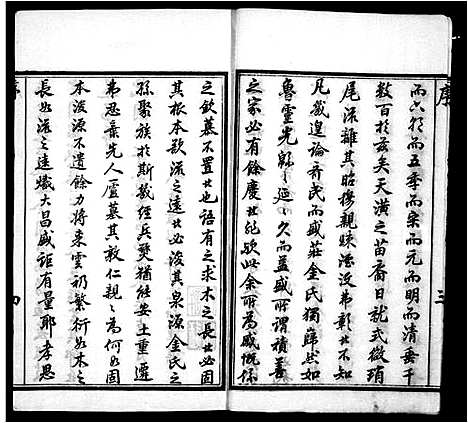 序
三
而六朝而五季而宋而元而明而清垂千
数百於兹矣天潢之苗裔日就式微琐
尾流離其昭穆親疎湮没弗彰者不知
凡幾遑論齊民而盛莊金氏獨巋然如
魯靈光緜之延之久而益盛所謂積善
之家必有餘慶者非歟此余所為感慨係
之欽慕不置者也語有之求木之長者必固
其根本欲流之遠者必浚其泉源金氏之
孫聚族於斯幾經兵燹猶能安土重遷
弗忍棄先人廬墓其敦仁親之為何如固
本浚源不遺餘力將来雲礽繁衍如木之
長如流之遠熾大昌盛詎有量耶孝思
序
四